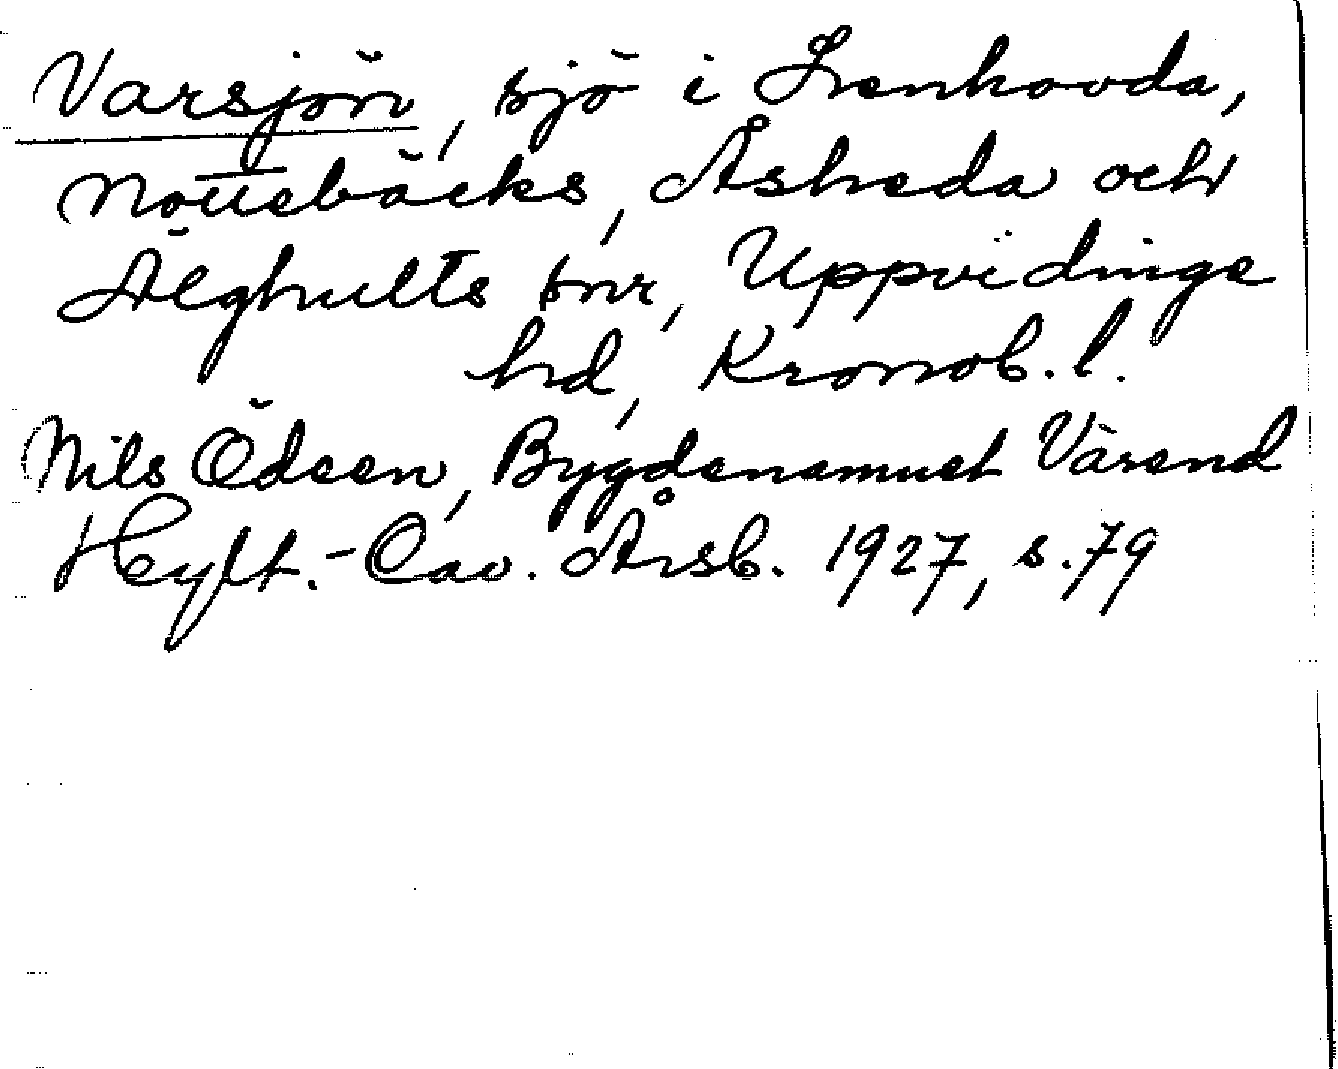 Varsjön, sjö i Lenhovda,
Nottebäcks, Åsheda och
Älghults snr, Uppvidinge
hd, Kronob. l.
Nils Ödeen, Bygdenamnet Värend
Hylt.-Cav. Årsb. 1927, s. 79